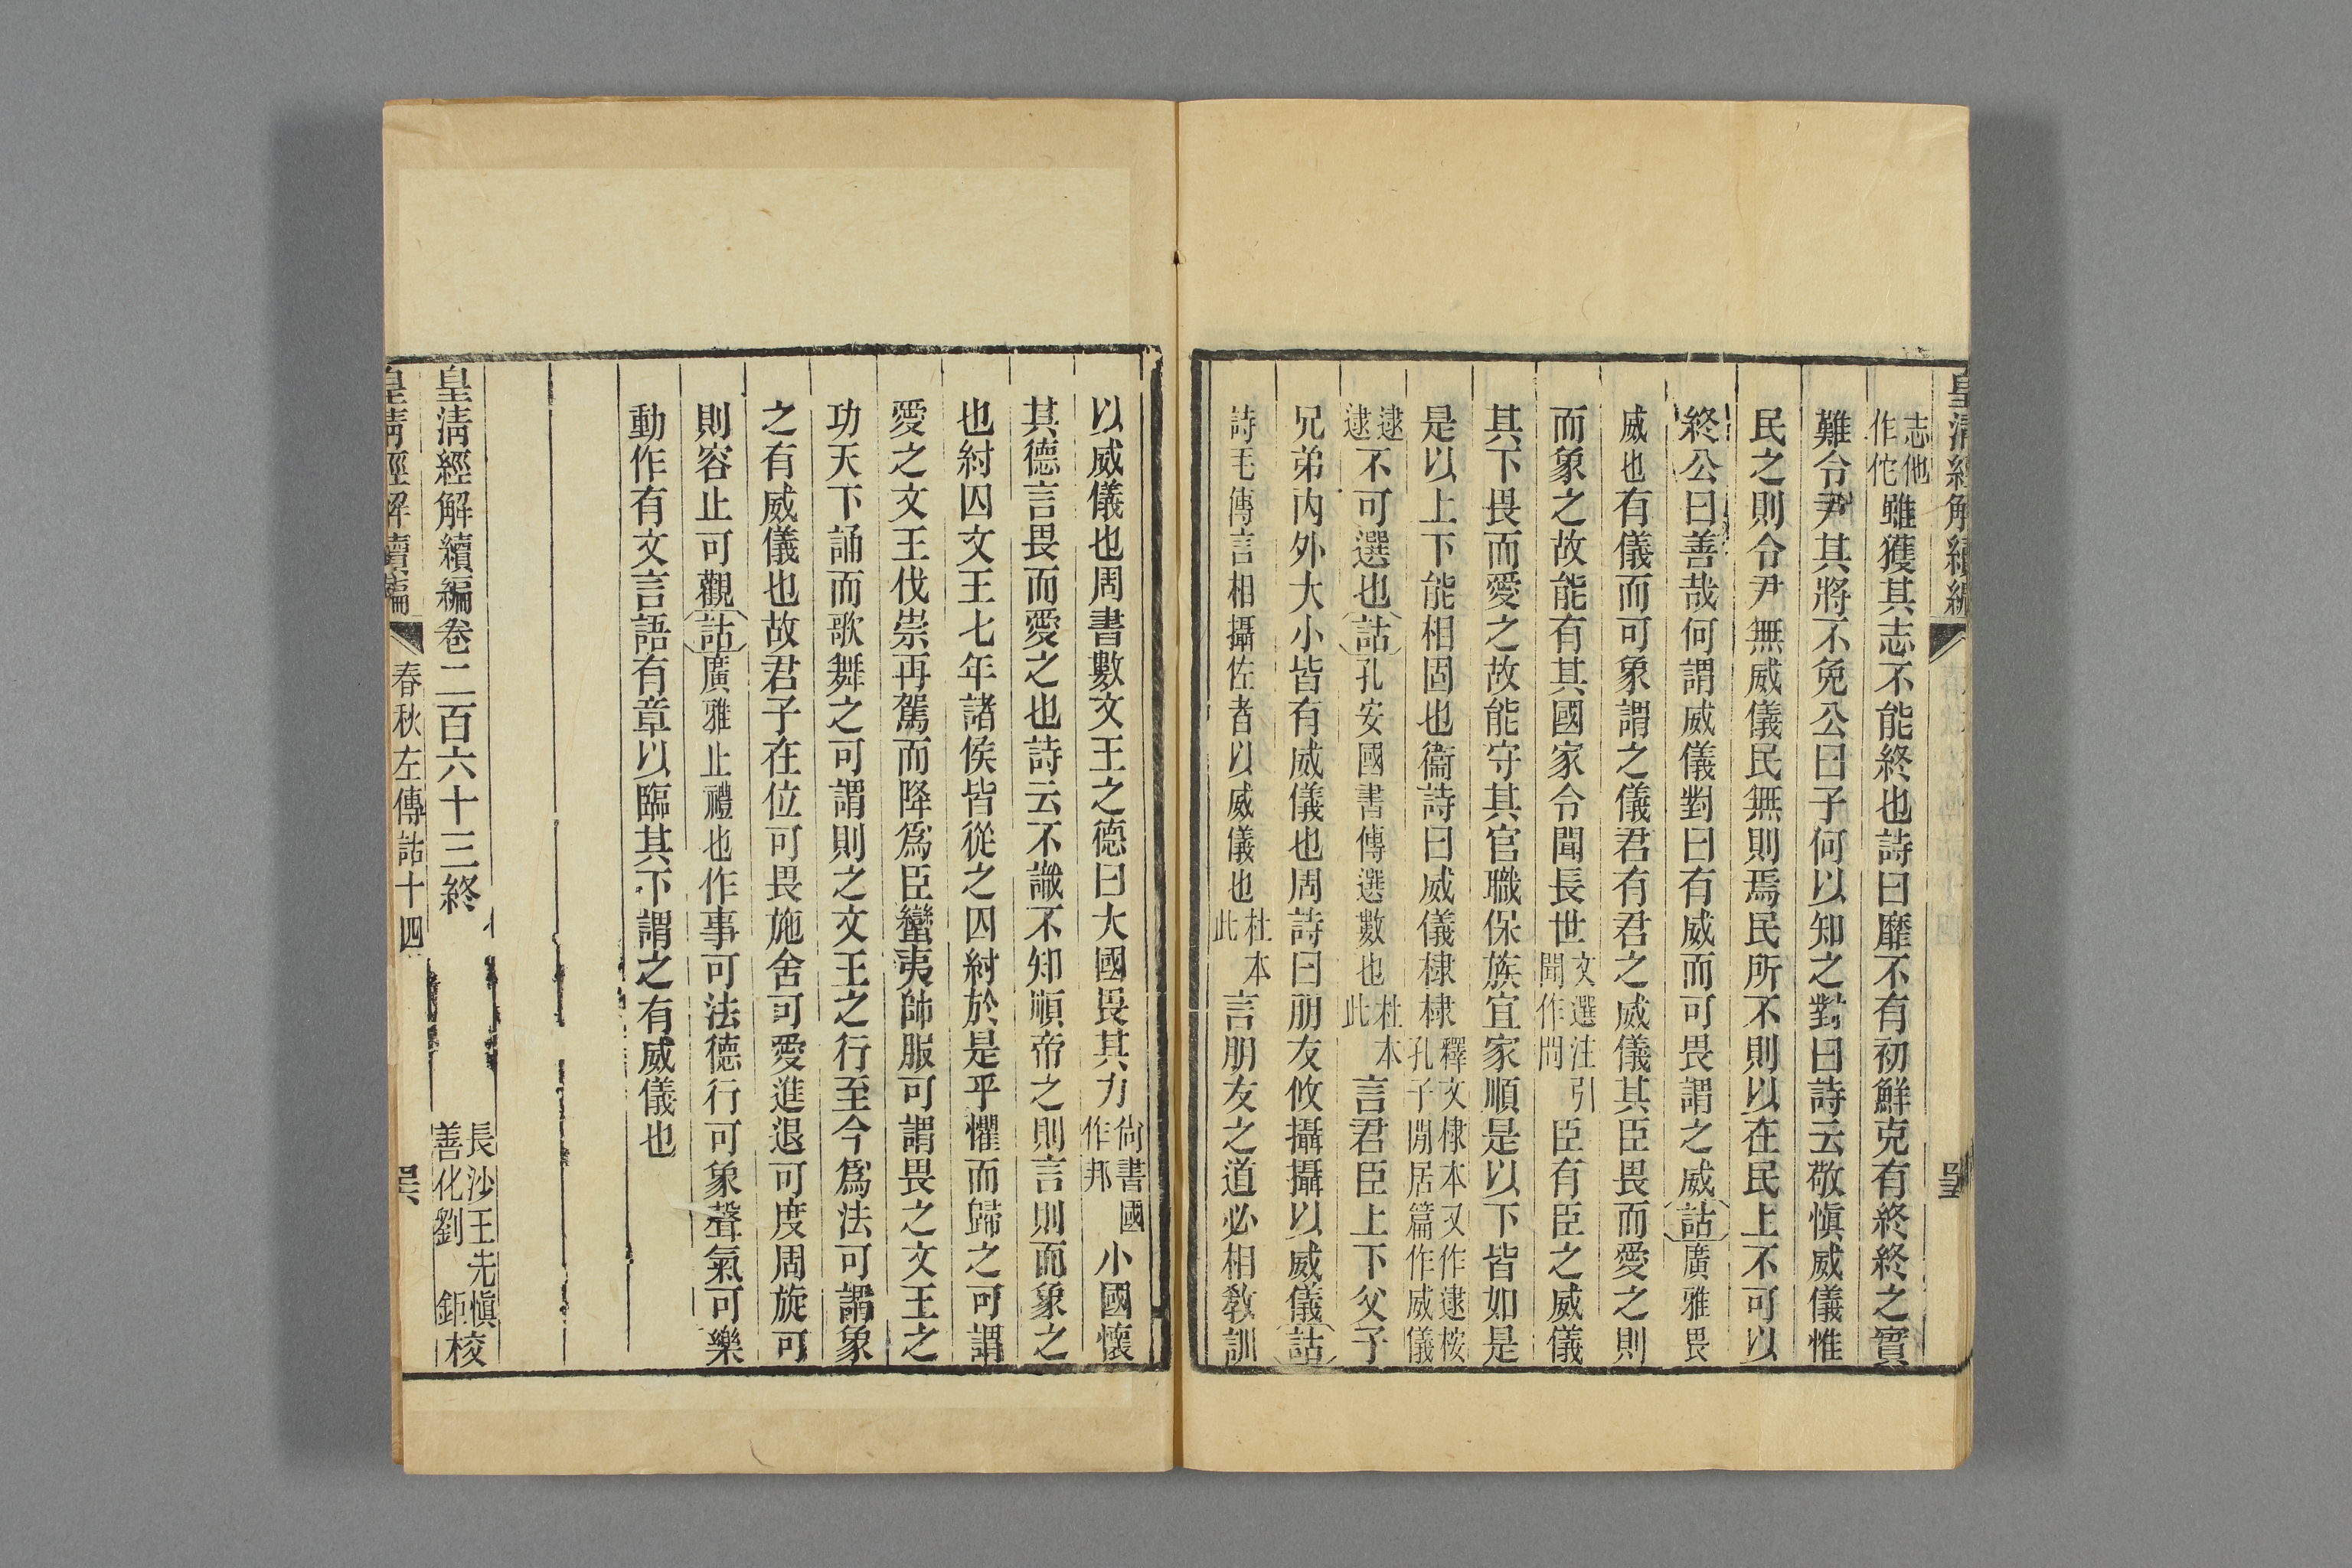 皇淸經解續編
志他作佗雖獲其志不能終也詩曰靡不有初鮮克有終終之實
難令尹其將不免公曰子何以知之對曰詩云敬愼威儀惟
民之則令尹無威儀民無則焉民所不則以在民上不可以
終公曰善哉何謂威儀對曰有威而可畏謂之威詁廣雅畏
威也有儀而可象謂之儀君有君之威儀其臣畏而愛之則
而象之故能有其國家令聞長世文選注引聞作問臣有臣之威儀
其下畏而愛之故能守其官職保族宜家順是以下皆如是
是以上下能相固也衞詩曰威儀棣棣釋文棣本又作逮桉孔子閒居篇作威儀
逮逮不可選也詁孔安國書傳選數也杜本此言君臣上下父子
兄弟內外大小皆有威儀也周詩曰朋友攸攝攝以威儀詁
詩毛傳言相攝佐者以威儀也杜本此言朋友之道必相敎訓
以威儀也周書數文王之德曰大國畏其力尙書國作邦小國懷
其德言畏而愛之也詩云不識不知順帝之則言則而象之
也紂囚文王七年諸侯皆從之囚紂於是乎懼而歸之可謂
愛之文王伐崇再駕而降爲臣蠻夷帥服可謂畏之文王之
功天下誦而歌舞之可謂則之文王之行至今爲法可謂象
之有威儀也故君子在位可畏施舍可愛進退可度周旋可
則容止可觀詁廣雅止禮也作事可法德行可象聲氣可樂
動作有文言語有章以臨其下謂之有威儀也
皇淸經解續編卷二百六十三終
長沙王先愼
善化劉鉅校
皇淸經解續編 春秋左傳詁十四